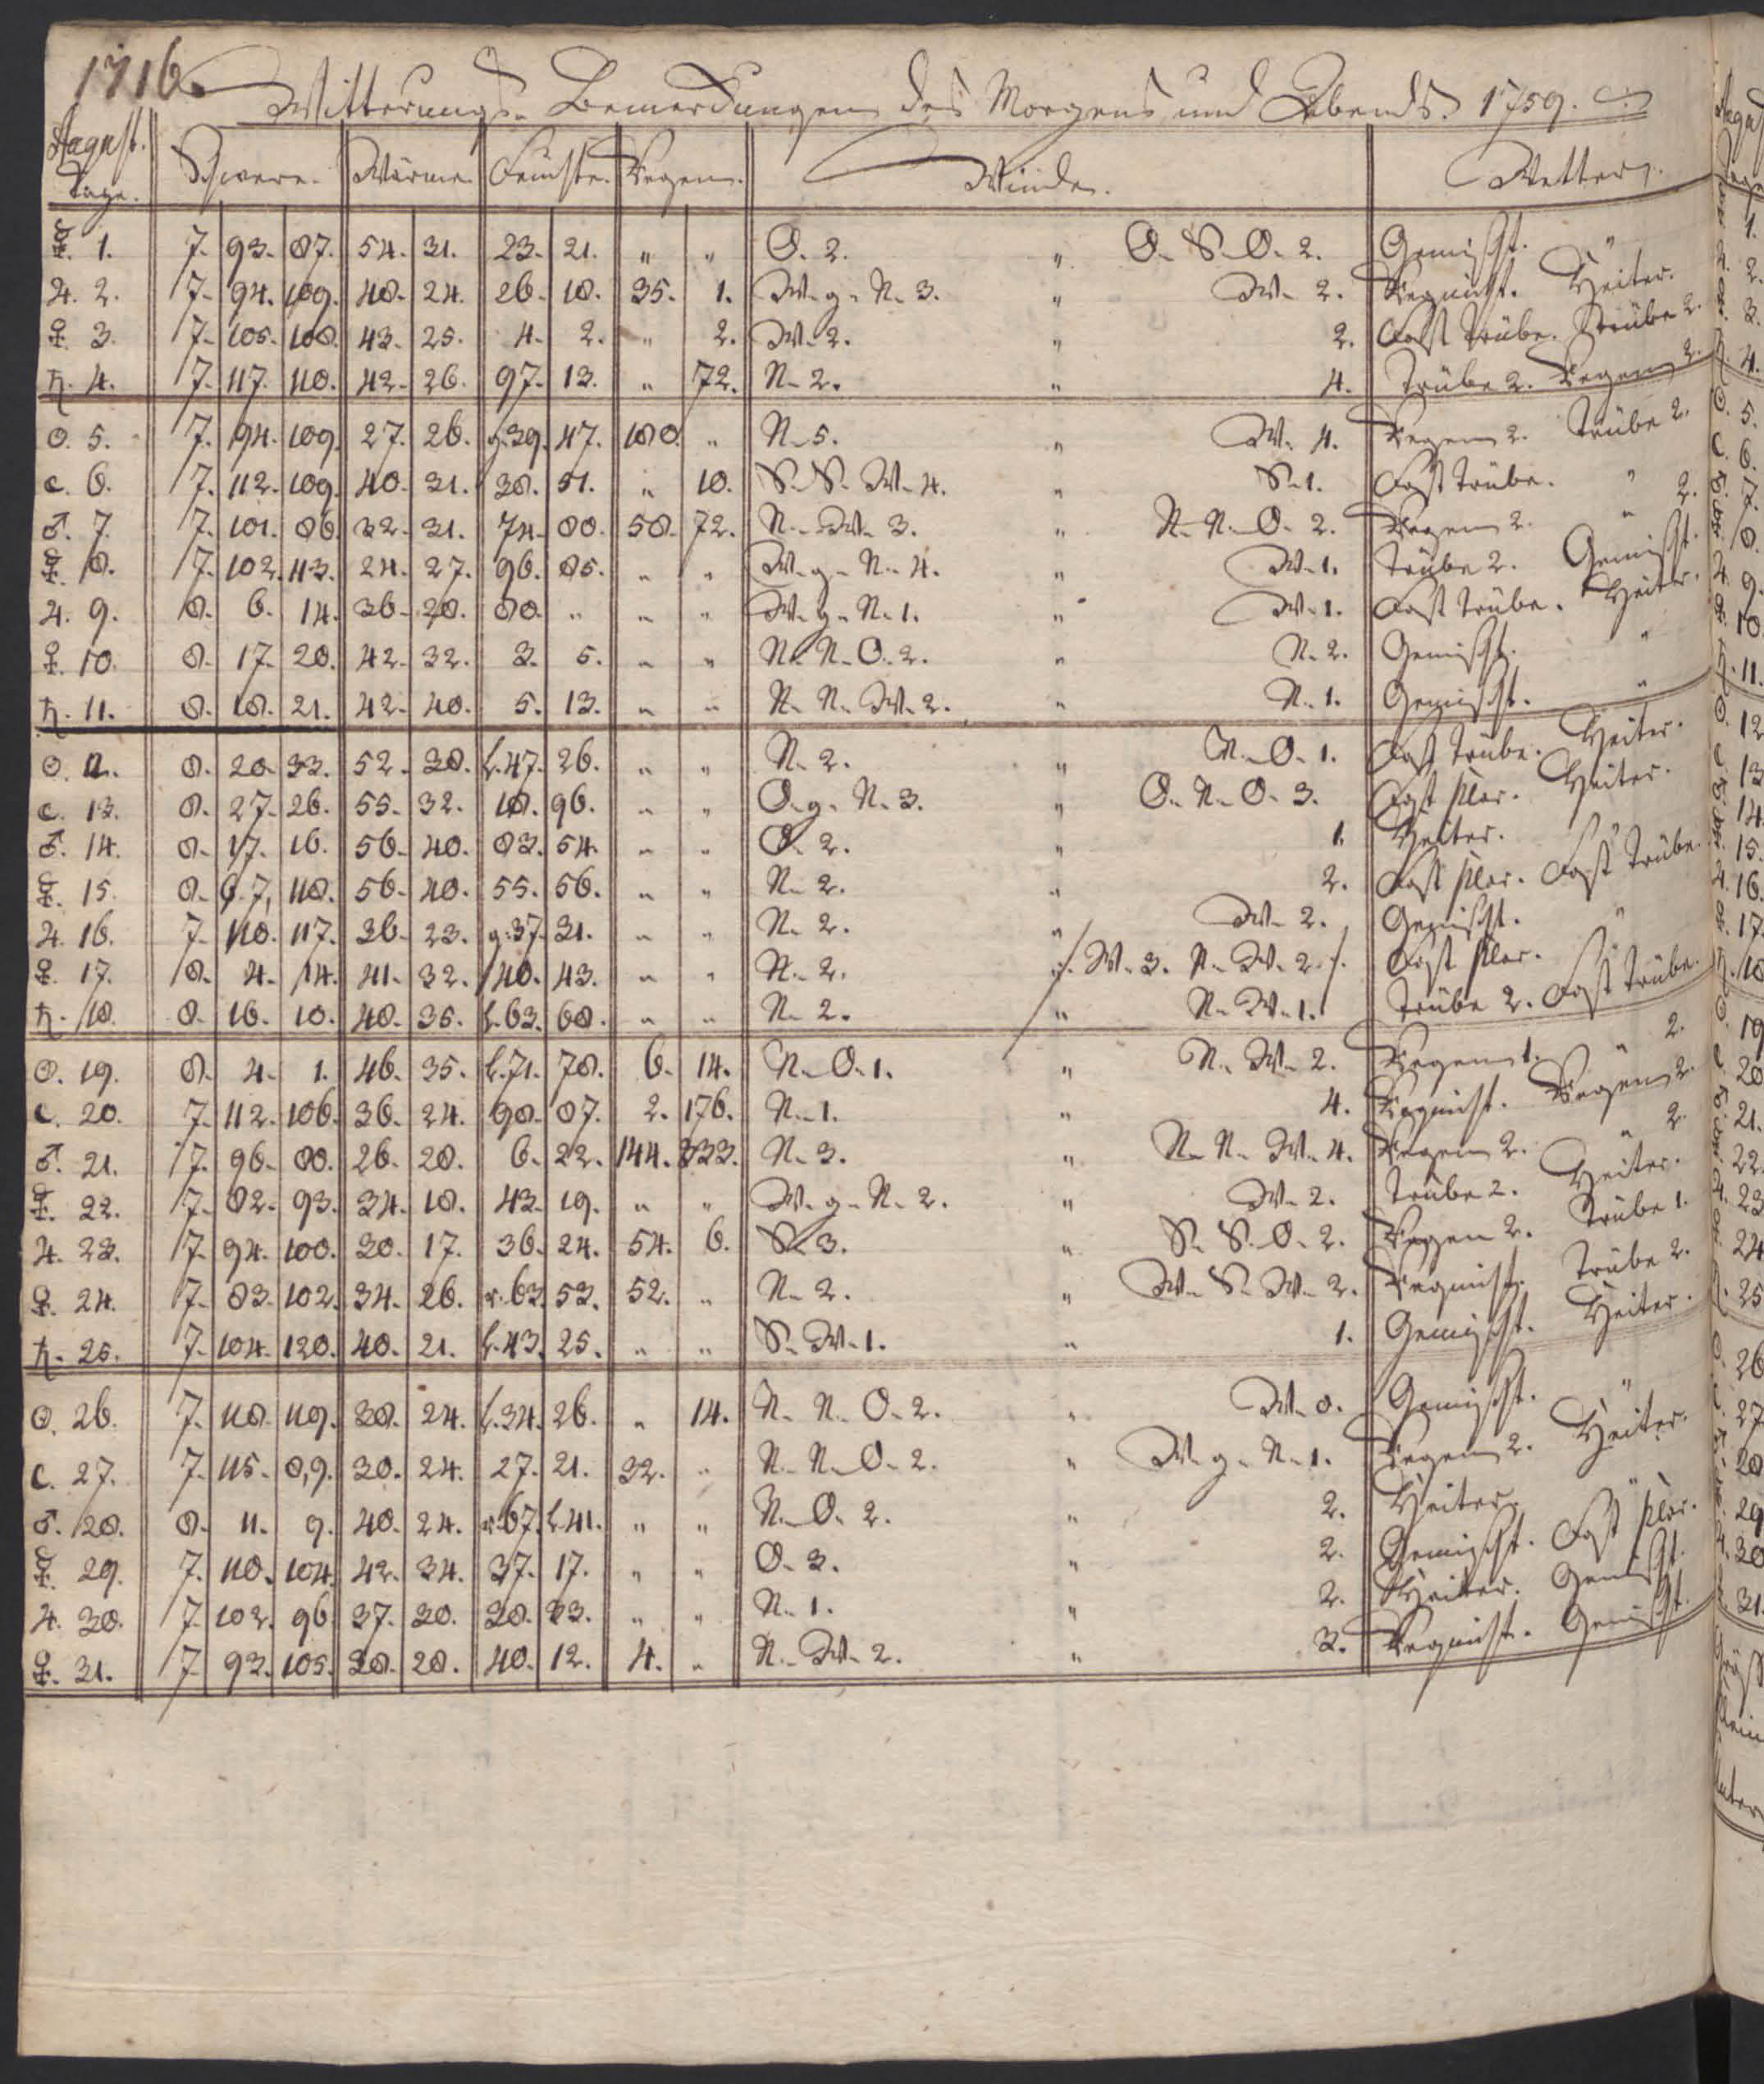 1716.
Witterungs- Bemerckungen des Morgens und Abends. 1759.
August. Tage. Schwere. Wärme. Feuchte. Regen. Winde. Wetter.
☿. 1. 7. 93. 87. 54. 31. 23. 21. " " O. 2. " O. S. O. 2. Gemischt. "
♃. 2. 7. 94. 109. 48. 24. 26. 18. 35. 1. W. g. N. 3. " W. 2. Regnicht. Heiter.
♀. 3. 7. 105. 108. 43. 25. 4. 2. " 2. W. 2. " 2. Fast trübe. Trübe 2.
♄. 4. 7. 117. 110. 42. 26. 97. 13. " 72. N. 2. " 4. Trübe 2. Regen 2.
☉. 5. 7. 94. 109. 27. 26. g. 39. 47. 180. " N. 5. " W. 4. Regen 2. Trübe 2.
☾. 6. 7. 112. 109. 40. 31. 38. 51. " 10. S. S. W. 4. " S. 1. Fast trübe. "
♂. 7. 7. 101. 86. 32. 31. 74. 80. 58. 72. N. W. 3. " N. N. O. 2. Regen 2. " 2.
☿. 8. 7. 102. 113. 24. 27. 96. 85. " " W. g. N. 4. " W. 1. Trübe 2. Gemischt.
♃. 9. 8. 6. 14. 36. 28. 80. " " " W. g. N. 1. " W. 1. Fast trübe. Heiter.
♀. 10. 8. 17. 20. 42. 32. 3. 5. " " N. N. O. 2. " N. 2. Gemischt. "
♄. 11. 8. 18. 21. 42. 40. 5. 13. " " N. N. W. 2. " N. 1. Gemischt. "
☉. 12. 8. 28. 33. 52. 38. l. 47. 26. " " N. 2. " N. O. 1. Fast trübe. Heiter.
☾. 13. 8. 27. 26. 55. 32. 18. 96. " " O. g. N. 3. " O. N. O. 3. Fast klar. Heiter.
♂. 14. 8. 17. 16. 56. 40. 83. 54. " " O. 2. " 1. Heiter. "
☿. 15. 8. 6. 7, 118. 56. 40. 55. 56. " " N. 2. " 2. Fast klar. Fast trübe.
♃. 16. 7. 118. 117. 36. 23. g. 37. 31. " " N. 2. " W. 2. Gemischt. "
♀. 17. 8. 4. 14. 41. 32. 40. 43. " " N. 2. "/. W. 3. N. W. 2./. Fast klar. "
♄. 18. 8. 16. 10. 40. 35. l. 63. 68. " " N. 2. " N. W. 1. Trübe 2. Fast trübe.
☉. 19. 8. 4. 1. 46. 35. l. 71. 78. 6. 14. N. O. 1. " N. W. 2. Regen 1. " 2.
☾. 20. 7. 112. 106. 36. 24. 98. 87. 2. 176. N. 1. " 4. Regnicht. Regen 2.
♂. 21. 7. 96. 80. 26. 20. 6. 22. 144. 333. N. 3. " N. N. W. 4. Regen 2. " 2.
☿. 22. 7. 82. 93. 34. 18. 43. 19. " " W. g. N. 2. " W. 2. Trübe 2. Heiter.
♃. 23. 7. 94. 100. 30. 17. 36. 24. 54. 6. S. 3. " S. S. O. 2. Regen 2. Trübe 1.
♀. 24. 7. 83. 102. 34. 26. r. 63. 53. 52. " N. 2. " W. S. W. 2. Regnicht. Trübe 2.
♄. 25. 7. 104. 120. 40. 21. l. 43. 25. " " S. W. 1. " 1. Gemischt. Heiter.
☉. 26. 7. 118. 119. 38. 24. l. 34. 26. " 14. N. N. O. 2. " W. 0. Gemischt. "
☾. 27. 7. 115. 8,9. 30. 24. 27. 21. 32. " N. N. O. 2. " W. g. N. 1. Regen 2. Heiter.
♂. 28. 8. 11. 9. 40. 24. r. 67. l. 41. " " N. O. 2. " 2. Heiter. "
☿. 29. 7. 118. 104. 42. 34. 37. 17. " " O. 3. " 2. Gemischt. Fast klar.
♃. 30. 7. 102. 96. 37. 30. 30. 33. " " N. 1. " 2. Heiter. Gemischt.
♀. 31. 7. 93. 105. 38. 28. 40. 12. 4. " N. W. 2. " 3. Regnicht. Gemischt.